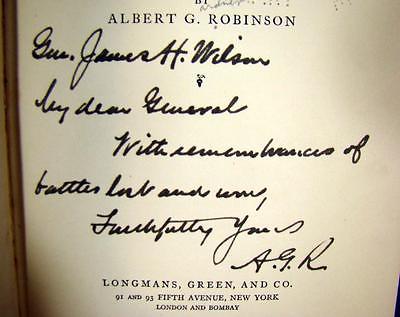 BY
ALBERT G. ROBINSON
Gen. James H. Wilson
My dear General
With remembrances of
battles lost and won,
Faithfully Yours
A.G.R.
LONGMANS, GREEN, AND CO.
91 AND 93 FIFTH AVENUE, NEW YORK
LONDON AND BOMBAY